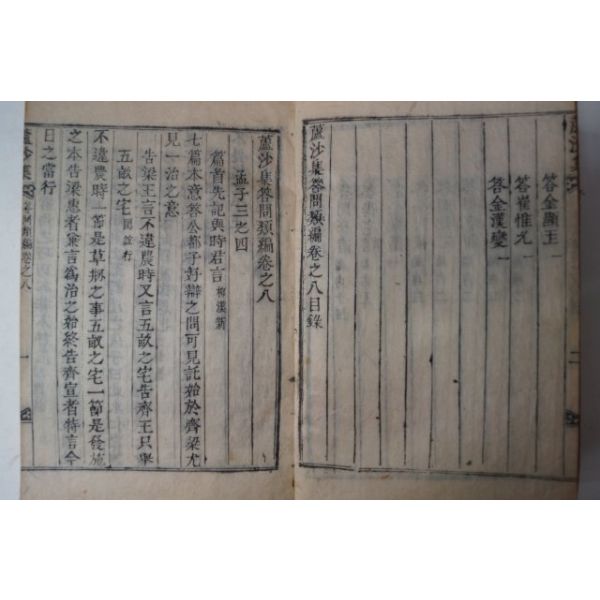 答金顯王 一
答崔惟允 一
答金漢燮 一
蘆沙集答問類編卷之八目錄
二
蘆沙集答問類編卷之八
孟子三之四
篇首先記與時君言 柳漢新
七篇本意答公都子好辯之問可見託始於齊梁尤
見一治之意
告梁王言不違農時又言五畝之宅告齊王只擧
五畝之宅 閔璣行
不違農時一節是草刱之事五畝之宅一節是發施
之本告梁惠者兼言爲治之始終告齊宣者特言今
日之當行
蘆沙集 答問類編卷之八 一